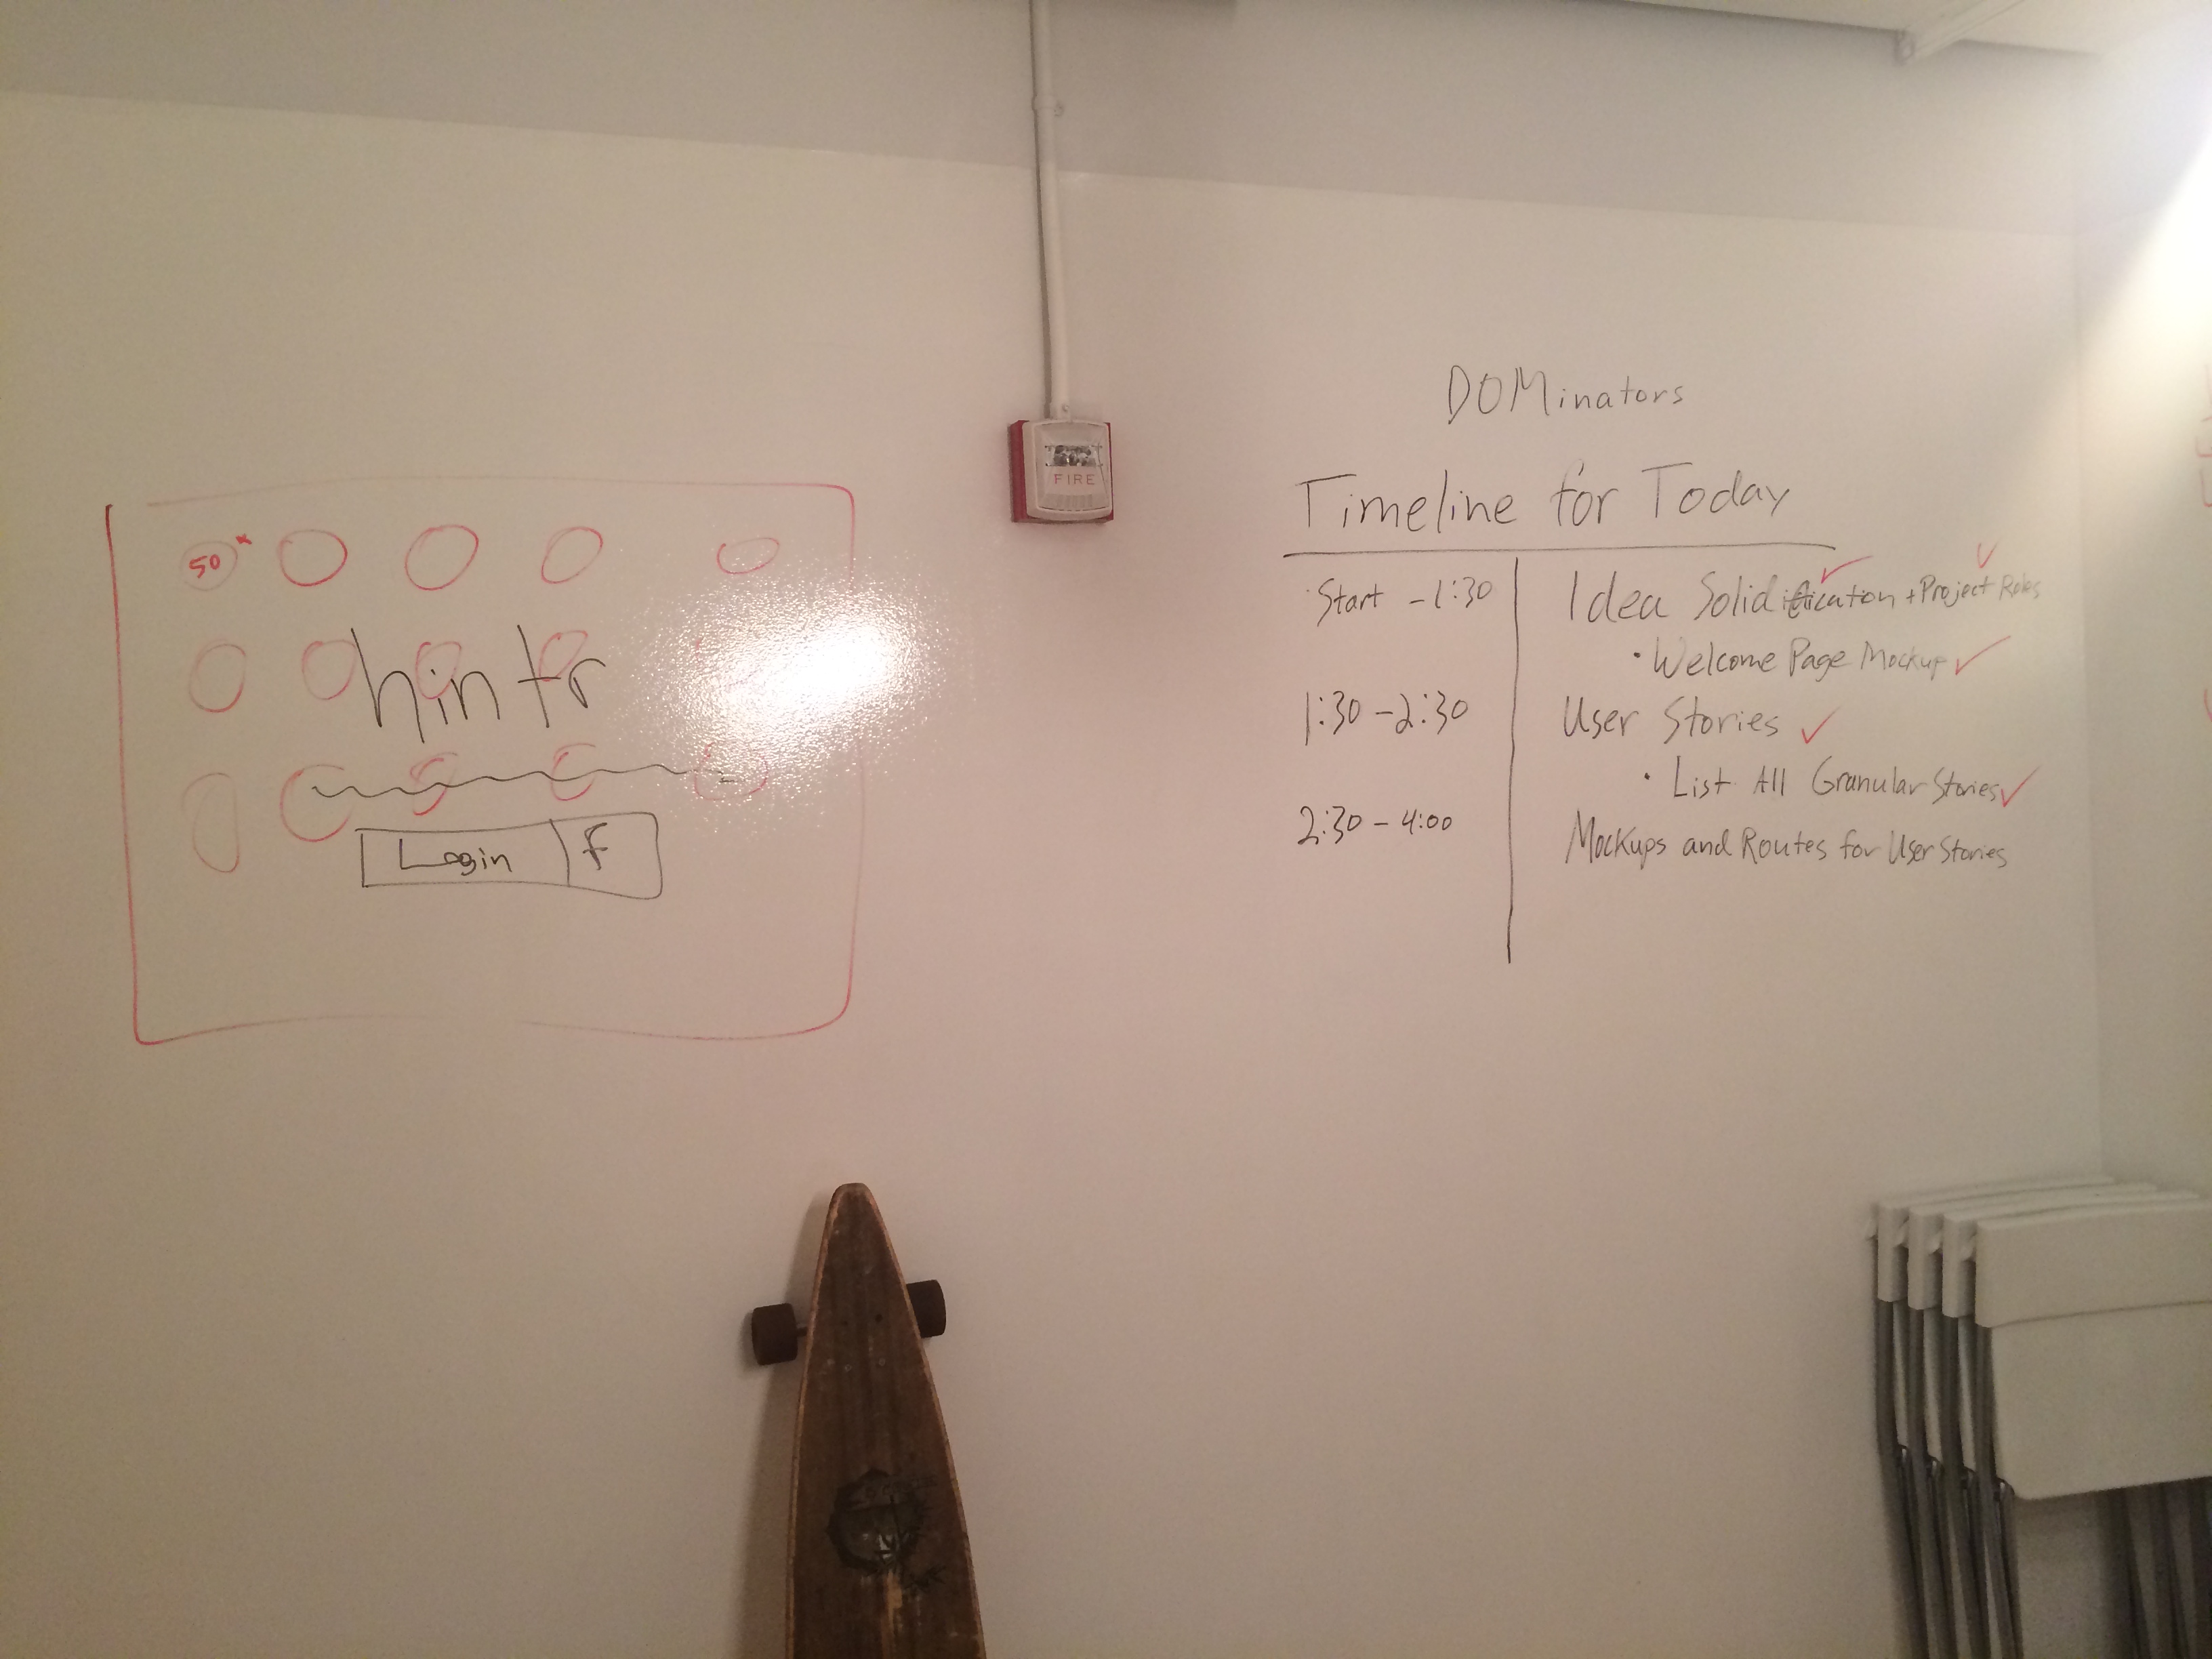 50
hintr
Login f
FIRE
DOMinators
Timeline for Today
Start - 1:30 Idea Solidification + Project Roles
• Welcome Page Mockup
1:30 - 2:30 User Stories
• List All Granular Stories
2:30 - 4:00 Mockups and Routes for User Stories